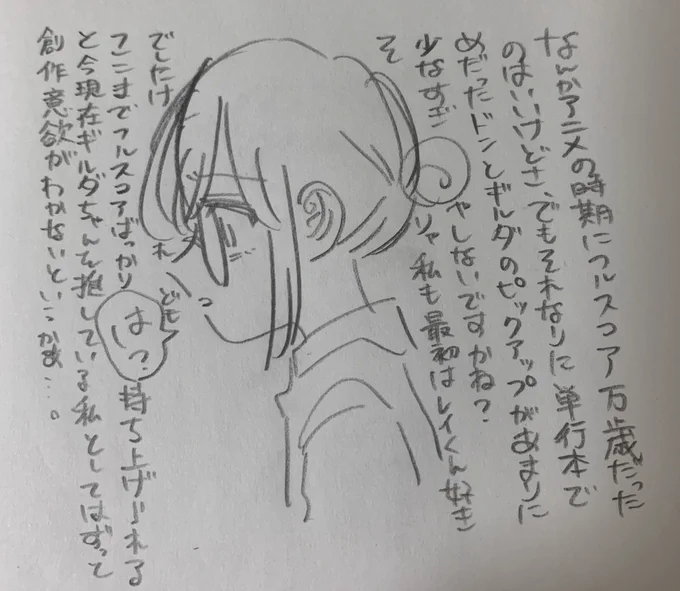 なんかアニメの時期にフルスコア万歳だった
のはいいけどさ、でもそれなりに単行本で
めだったドンとギルダのピックアップがあまりに
少なすぎやしないですかね?
そりゃ私も最初はレイくん好き
でしたけれども
ここまでフルスコアばっかり持ち上げられる
と今現在ギルダちゃんを推している私としてはずって
創作意欲がわかないというかぁ…。
は?